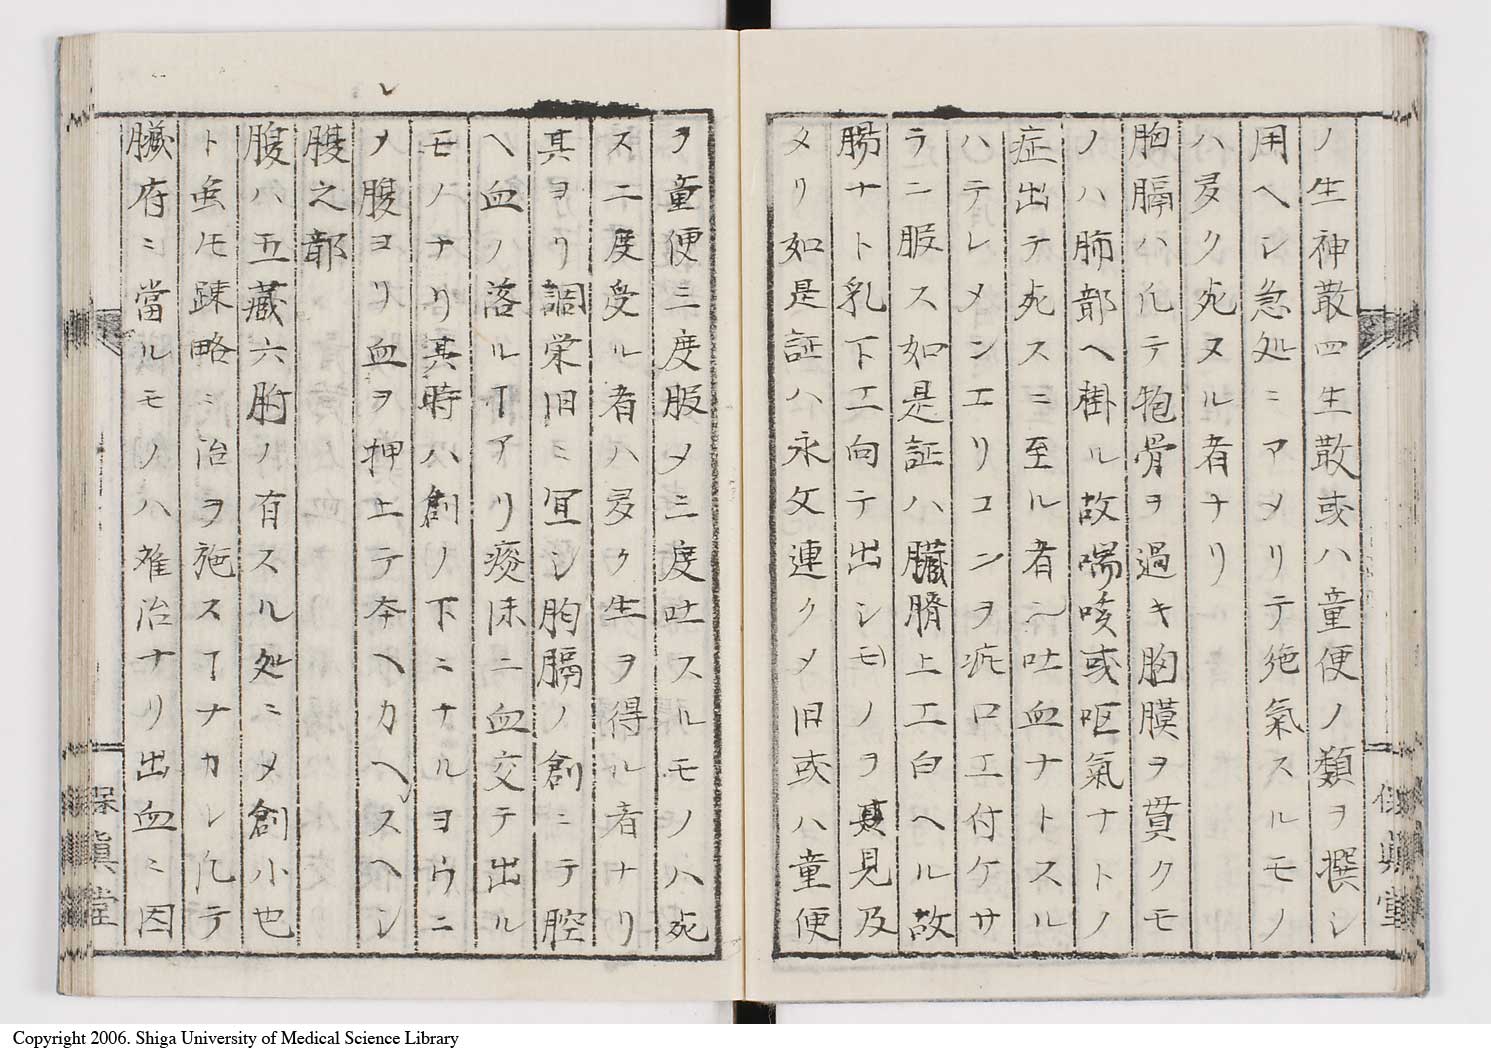 ノ生神散四生散或ハ童便ノ類ヲ撰シ
用ヘシ急処ニアメリテ絶氣スルモノ
ハ多ク死ヌル者ナリ
胸膈ハ凡テ抱骨ヲ過キ胸膜ヲ貫クモ
ノハ肺部ヘ掛ル故喘咳或呕氣ナトノ
症出テ死スニ至ル者ハ吐血ナトスル
ハテレメンエリコンヲ疵口エ付ケサ
ラニ服ス如是証ハ臓臍上エ白ヘル故
腸ナト乳下エ向テ出シモノヲ見及
メリ如是証ハ永文連クメ旧或ハ童便
ヲ童便三度服メ三度吐スルモノハ死
ス二度受ル者ハ多ク生ヲ得ル者ナリ
其ヨリ調栄旧ニ冝シ胸膈ノ創ニテ腔
ヘ血ノ落ルヿアリ痰沫ニ血交テ出ル
モノナリ其時ハ創ノ下ニナルヨウニ
メ腹ヨリ血ヲ押上テ夲ヘカヘスヘシ
腹之部
腹ハ五藏六腑ノ有スル処ニメ創小也
ト虽𪜈疎略ニ治ヲ施スヿナカレ凡テ
臓府ニ當ルモノハ難治ナリ出血ニ因
保眞堂
保眞堂
Copyright 2006. Shiga University of Medical Science Library